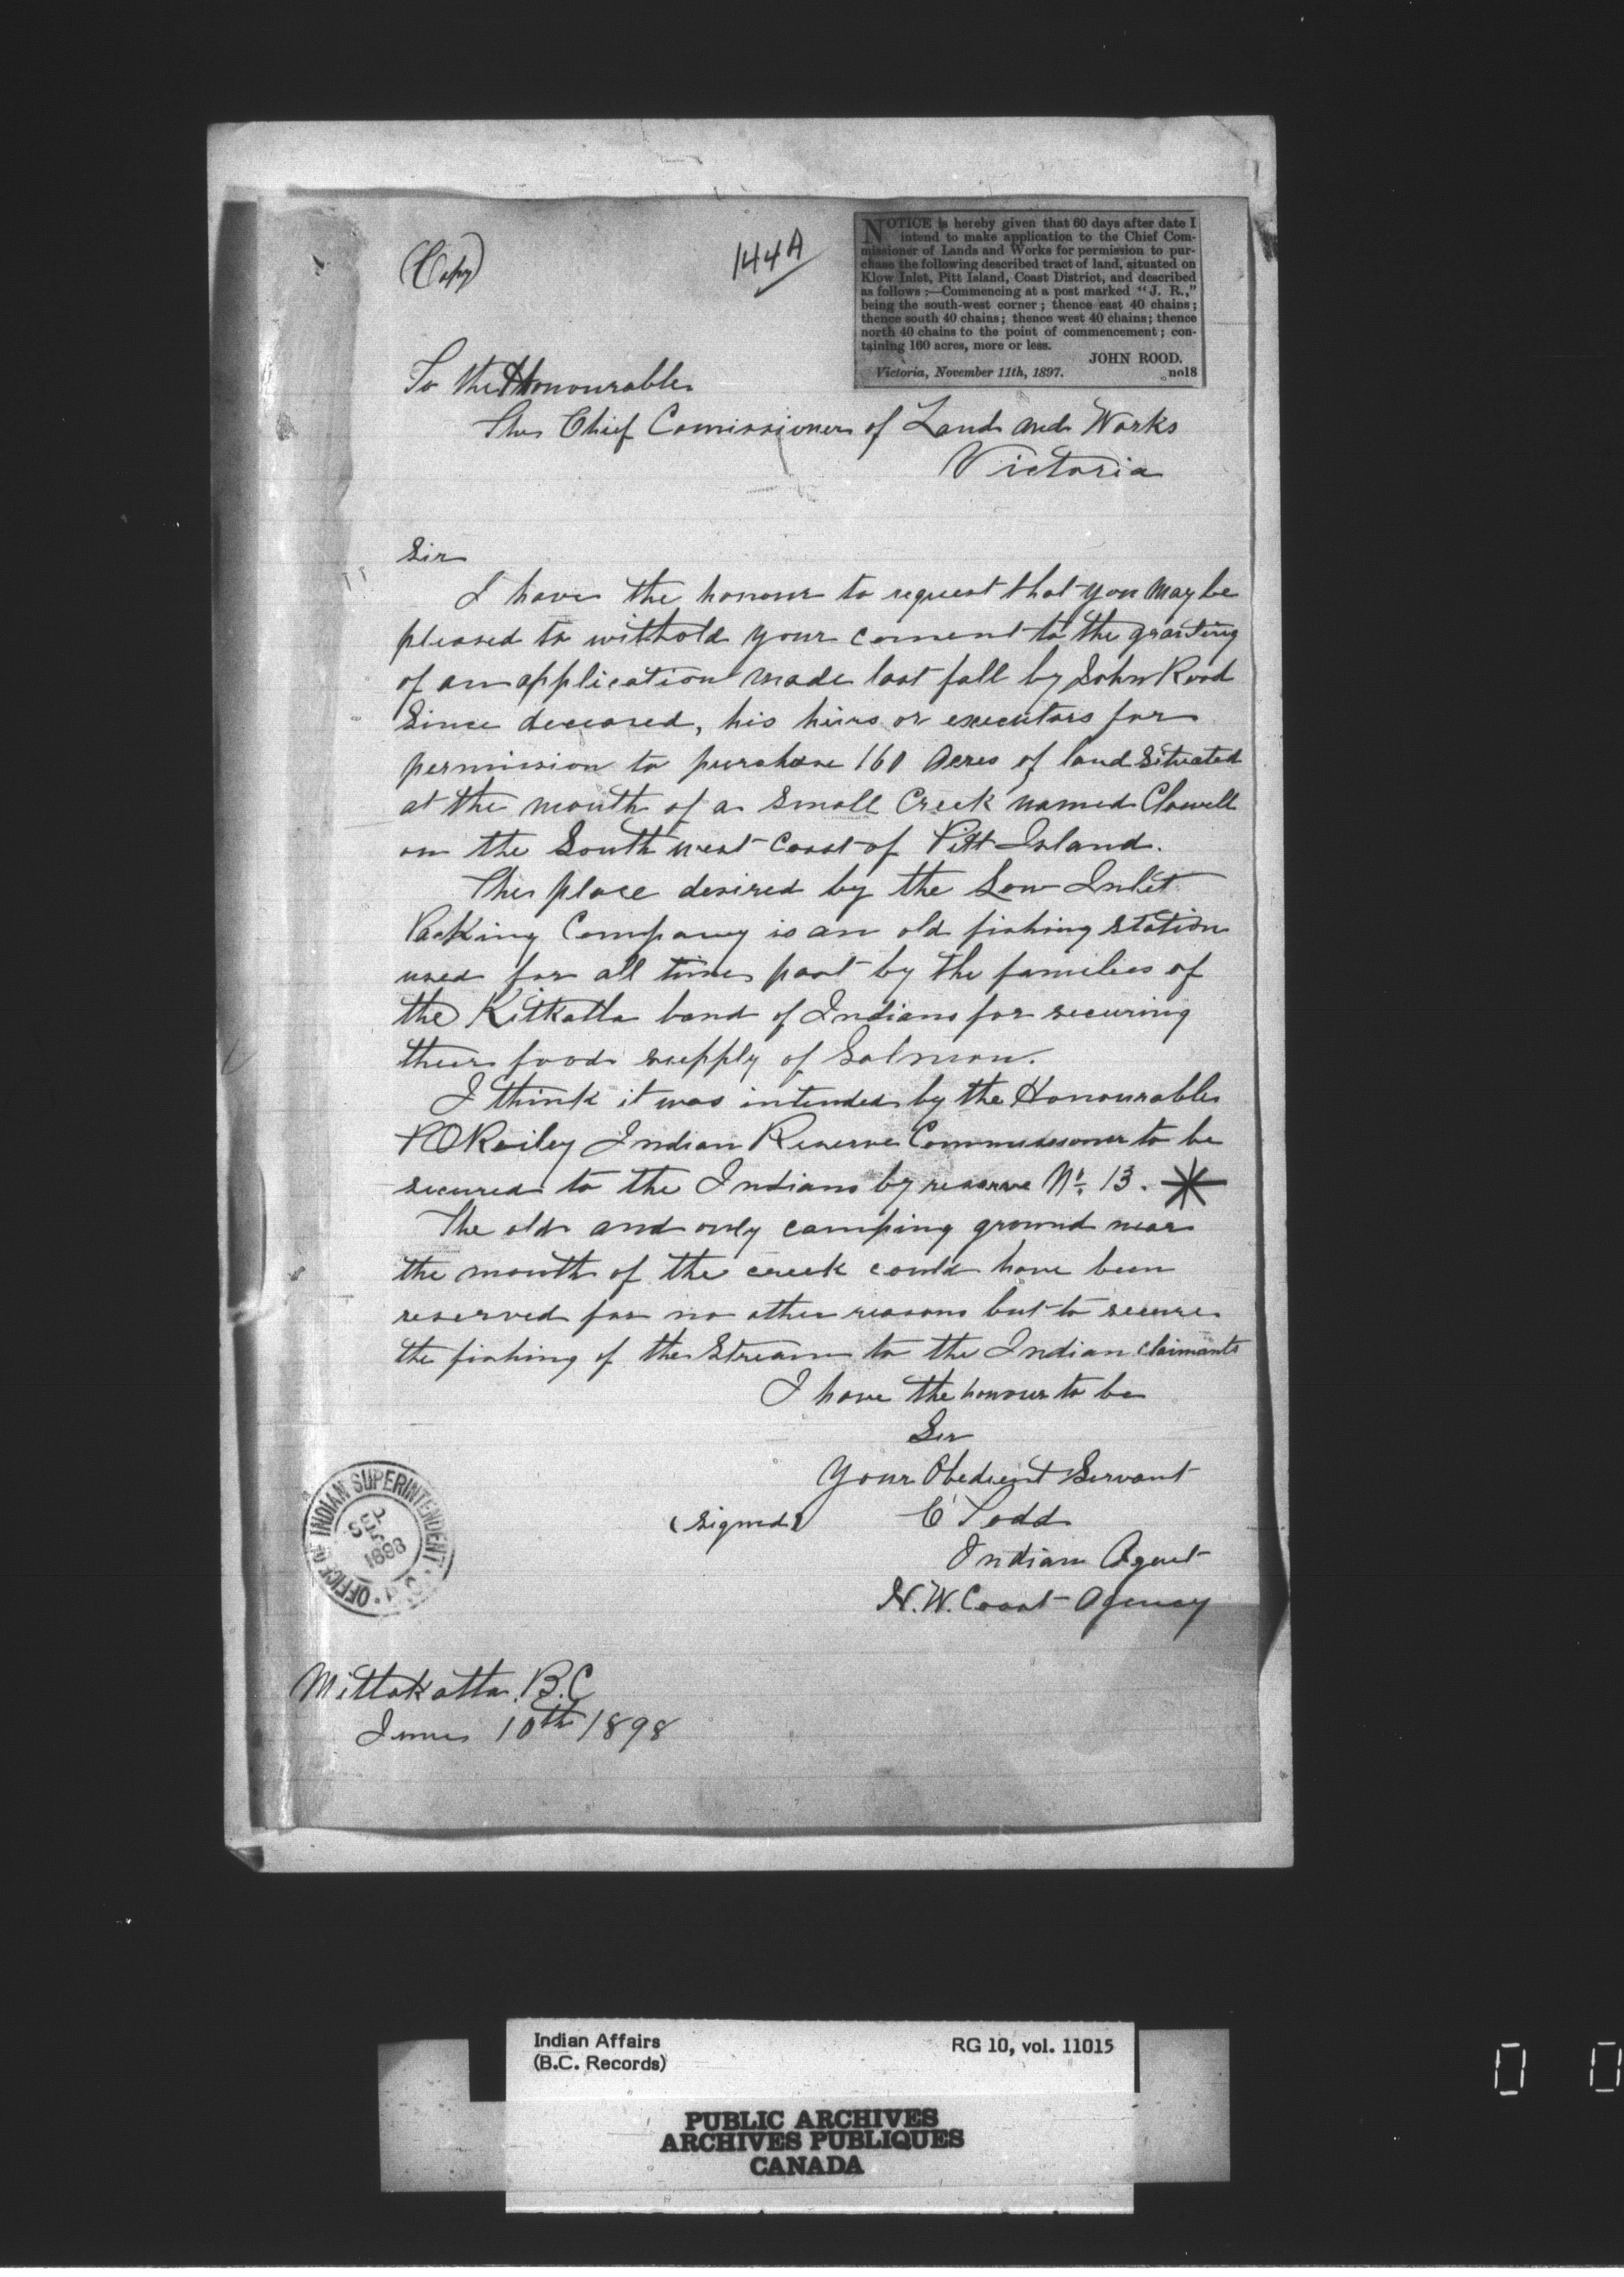 (Copy)
144A
NOTICE is hereby given that 60 days after date I
intend to make application to the Chief Com-
missioner of Lands and Works for permission to pur-
chase the following described tract of land, situated on
Klow Inlet, Pitt Island, Coast District, and described
as follows :—Commencing at a post marked "J. R.,"
being the south-west corner ; thence east 40 chains ;
thence south 40 chains ; thence west 40 chains ; thence
north 40 chains to the point of commencement ; con-
taining 160 acres, more or less.
JOHN ROOD.
Victoria, November 11th, 1897. no18
To the Honourable
The Chief Comissioner of Land and Works
Victoria
Sir
I have the honour to request that you may be
pleased to withold your consent to the granting
of an application made last fall by John Rood
Since deceased, his heirs or executors for
permission to purchase 160 Acres of land Situated
at the mouth of a Small Creek named Clowell
on the South west Coast of Pitt Island.
The place desired by the Low Inlet
Packing Company is an old fishing Station
used for all time past by the families of
the Kitkatla band of Indians for securing
their food supply of Salmon.
I think it was intended by the Honourable
P O Reiley Indian Reserve Commissioner to be
secured to the Indians by reserve No. 13. *
The old and only camping ground near
the mouth of the creek could have been
reserved for no other reasons but to secure
the fishing of the Stream to the Indian claimants
I have the honour to be
Sir
Your Obedient Servant
(Signed) C Todd
Indian Agent
N.W. Coast Agency
OFFICE OF INDIAN SUPERINTENDENT
SEP
1898
Mitlakatla. B.C
June 10th 1898
Indian Affairs RG 10, vol. 11015
(B.C. Records)
PUBLIC ARCHIVES
ARCHIVES PUBLIQUES
CANADA
0 0